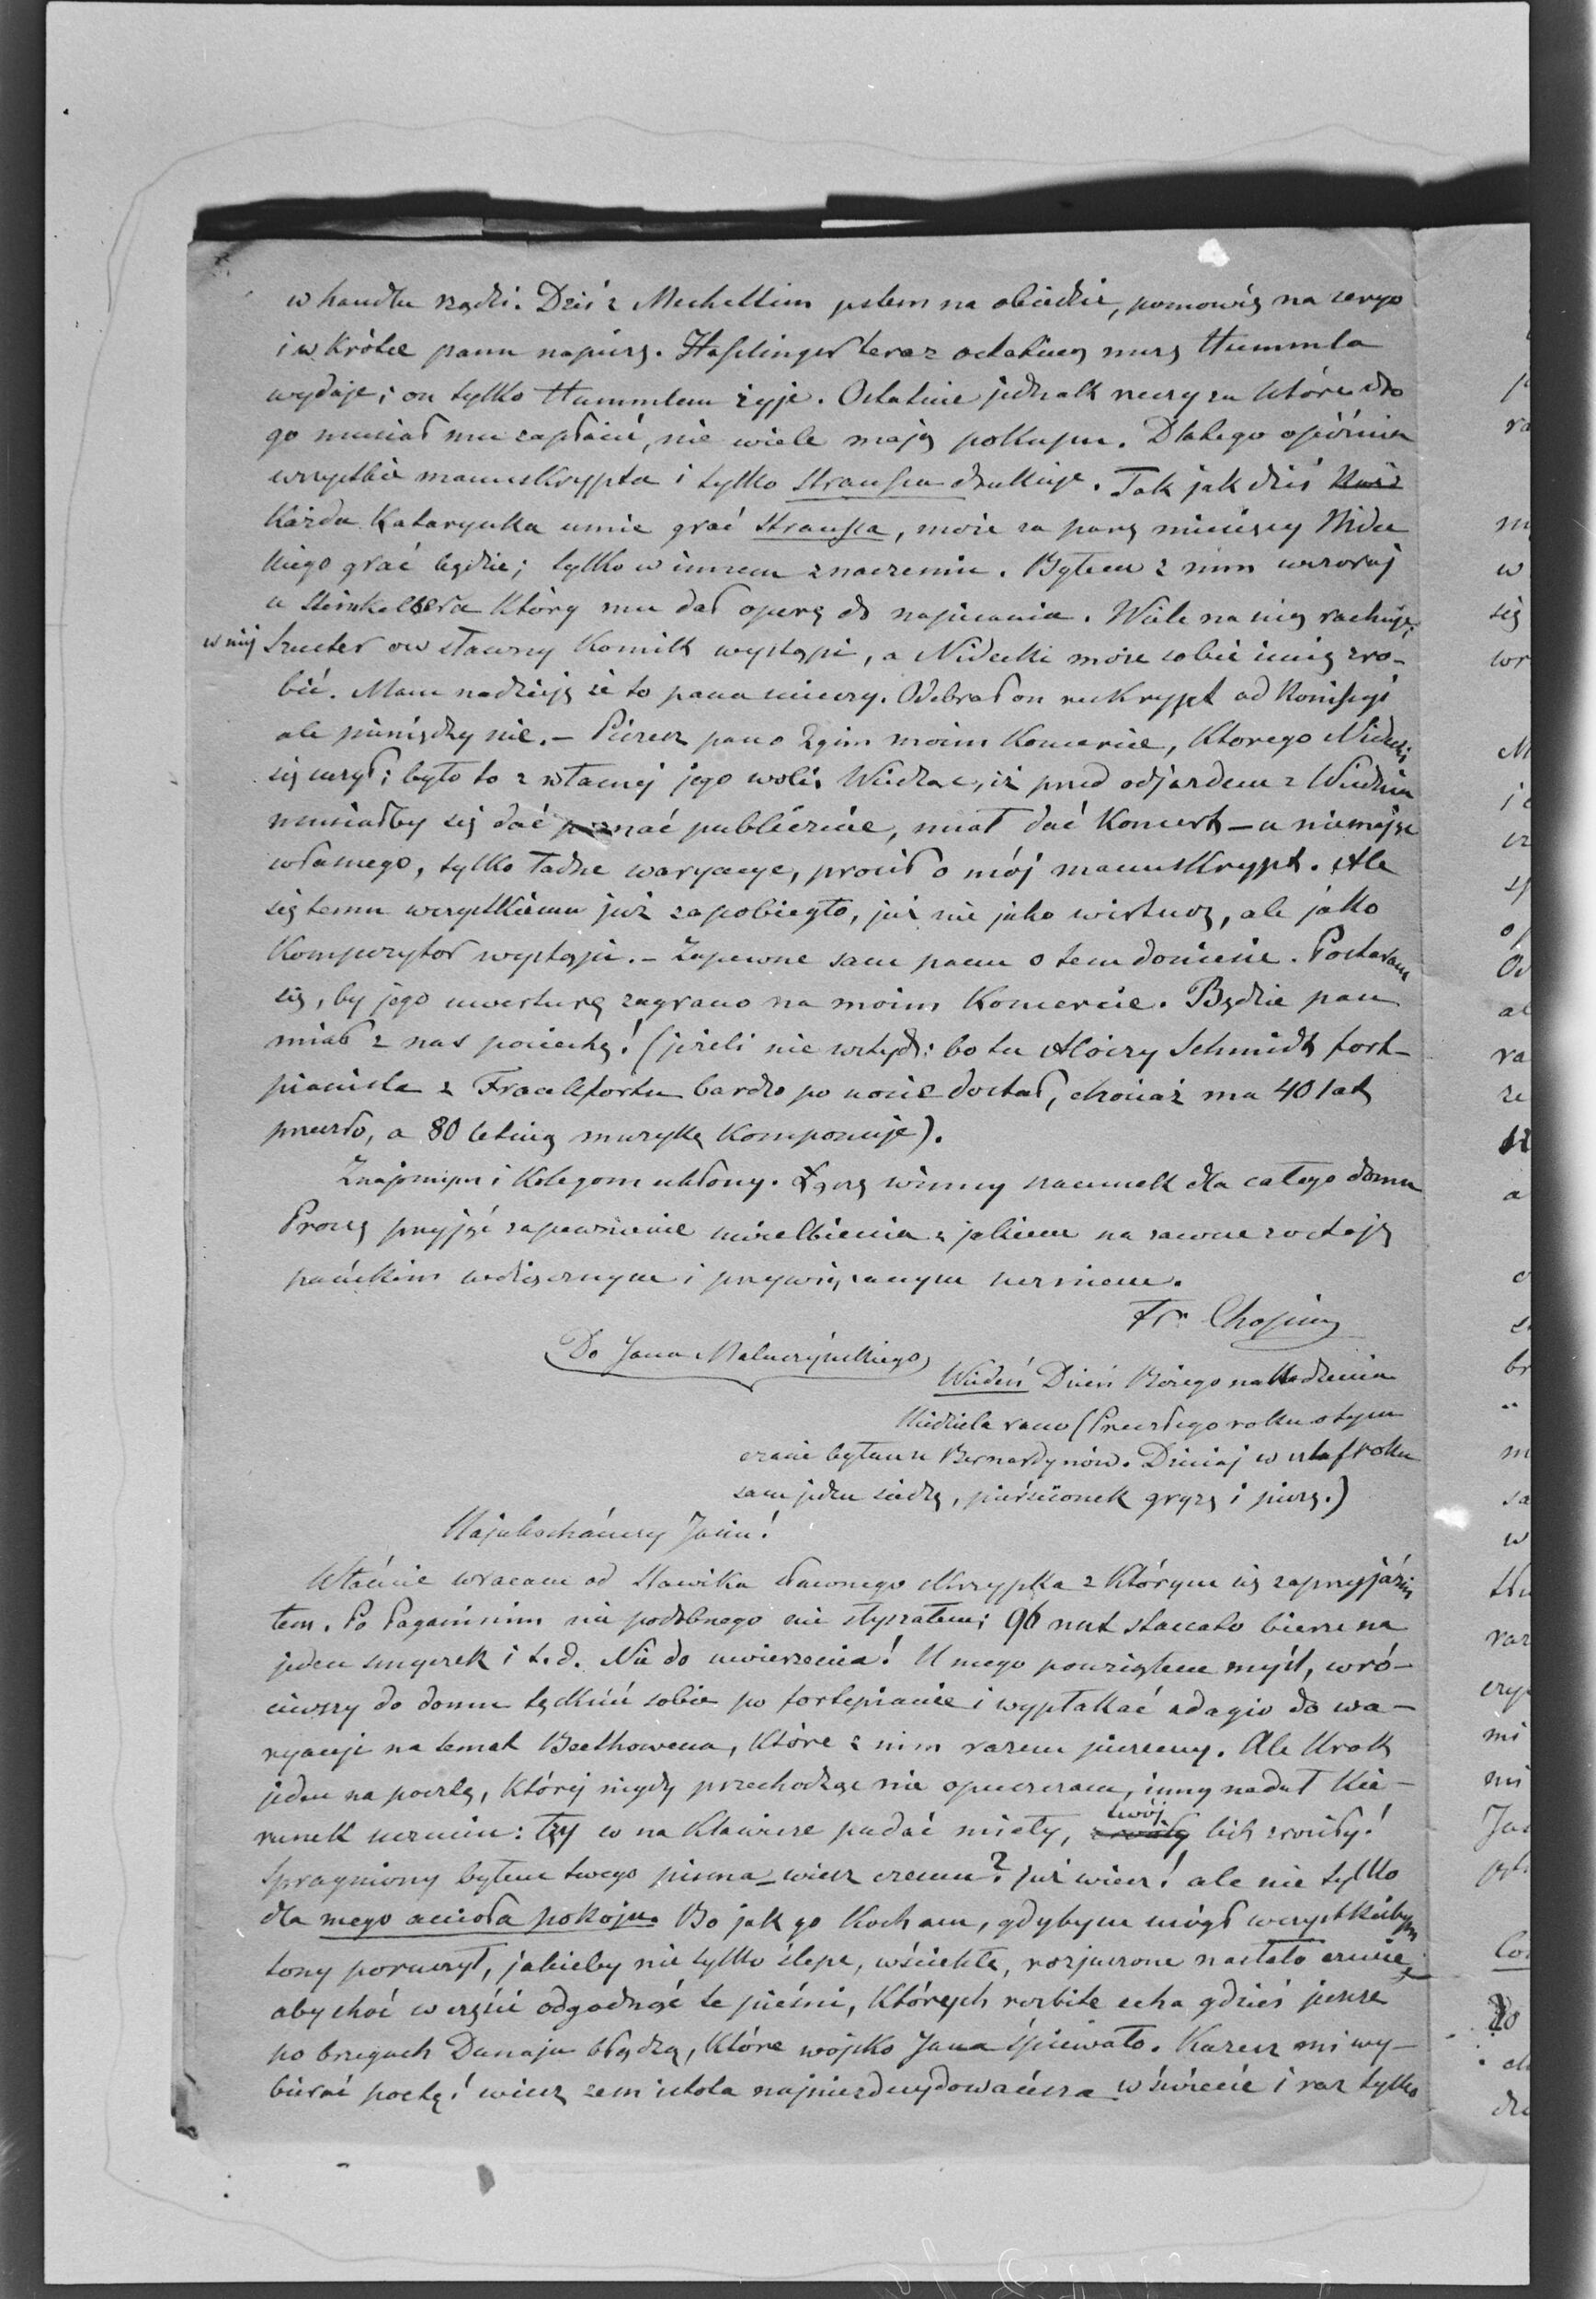 w handlu rządzi. Dziś z Mechettim jestem na obiedzie, pomowię na seryo
i w krótce panu napiszę. Haslinger teraz ostatnią mszę Hummla
wydaje; on tylko Hummlem żyje. Ostatnie jednak rzeczy za które dro
go musiał mu zapłacić, nie wiele mają pokupu. Dlatego opóźnia
wszystkie manuskrypta i tylko Straussa drukuje. Tak jak dziś
każda Katarynka umie grać Straussa, może za parę miesięcy Nidec
kiego grać będzie; tylko w innem znaczeniu. Byłem z nim wczoraj
u Steinkellera który mu dał operę do napisania. Wiele na nią rachuje;
w niej Szuster ow sławny Komik wystąpi, a Nidecki może sobie imię zro-
bić. Mam nadzieję że to pana ucieszy. Odebrał on rękrypt od Komissyi
ale pieniędzy nie. – Piszesz pan o 2gim moim Koncercie, Ktorego Nidecki
się uczył; było to z własnej jego woli. Widząc, iż przed odjazdem z Wiednia
musiałby się dać poznać publicznie, miał dać Koncert – a niemając
własnego, tylko ładne waryacye, prosił o mój manuskrypt. Ale
się temu wszystkiemu już zapobiegło, już nie jako wirtuoz, ale jako
Kompozytor wystąpi. – Zapewne sam panu o tem doniesie. Postaram
się, by jego uwerturę zagrano na moim Koncercie. Będzie pan
miał z nas pociechę! (jeżeli nie wstyd: bo tu Aloizy Schmidt fort-
pianista z Frankfortu bardzo po nosie dostał, chociaż ma 40 lat
przeszło, a 80 letnią muzykę Komponuje).
Znajomym i Kolegom ukłony. Łączę winny szacunek dla całego domu
Proszę przyjąć zapewnienie uwielbienia z jakiem na zawsze zostaję
pańskim wdzięcznym i przywiązanym uczniem.
Fr. Chopin
Do Jana Matuszyńskiego
Wiedeń Dzień Bożego narodzenia
Niedziela rano (Przeszłego roku o tym
czasie byłem u Bernardynów. Dzisiaj w szlafroku
sam jeden siedzę, pierścionek gryzę i piszę.)
Najukochańszy Jasiu!
Właśnie wracam od Sławika sławnego skrzypka z Którym się zaprzyjaźni
łem. Po Paganinim nic podobnego nie słyszałem; 96 nut staccato bierze na
jeden smyczek i t.d. Nie do uwierzenia! U niego powziąłem myśl, wró-
ciwszy do domu tęsknić sobie po fortepianie i wypłakać adagio do wa-
ryacyi na temat Beethowena, Które z nim razem piszemy. Ale krok
jeden na pocztę, Której nigdy przechodząc nie opuszczam, inny nadał kie-
runek uczuciu: łzy co na klawisze padać miały, twój list zrosiły!
Spragniony byłem twego pisma – wiesz czemu? już wiesz! ale nie tylko
dla mego anioła pokoju. Bo jak go Kocham, gdybym mógł wszystkiebym
tony poruszył, jakieby mi tylko ślepe, wściekłe, rozjuszone nasłało czucie
aby choć w części odgadnąć te pieśni, Których rozbite echa gdzieś jeszcze
po brzegach Dunaju błądzą, Które wojsko Jana śpiewało. Każesz mi wy-
bierać poetę! wiesz żem istota najniezdecydowańsza w świecie i raz tylko